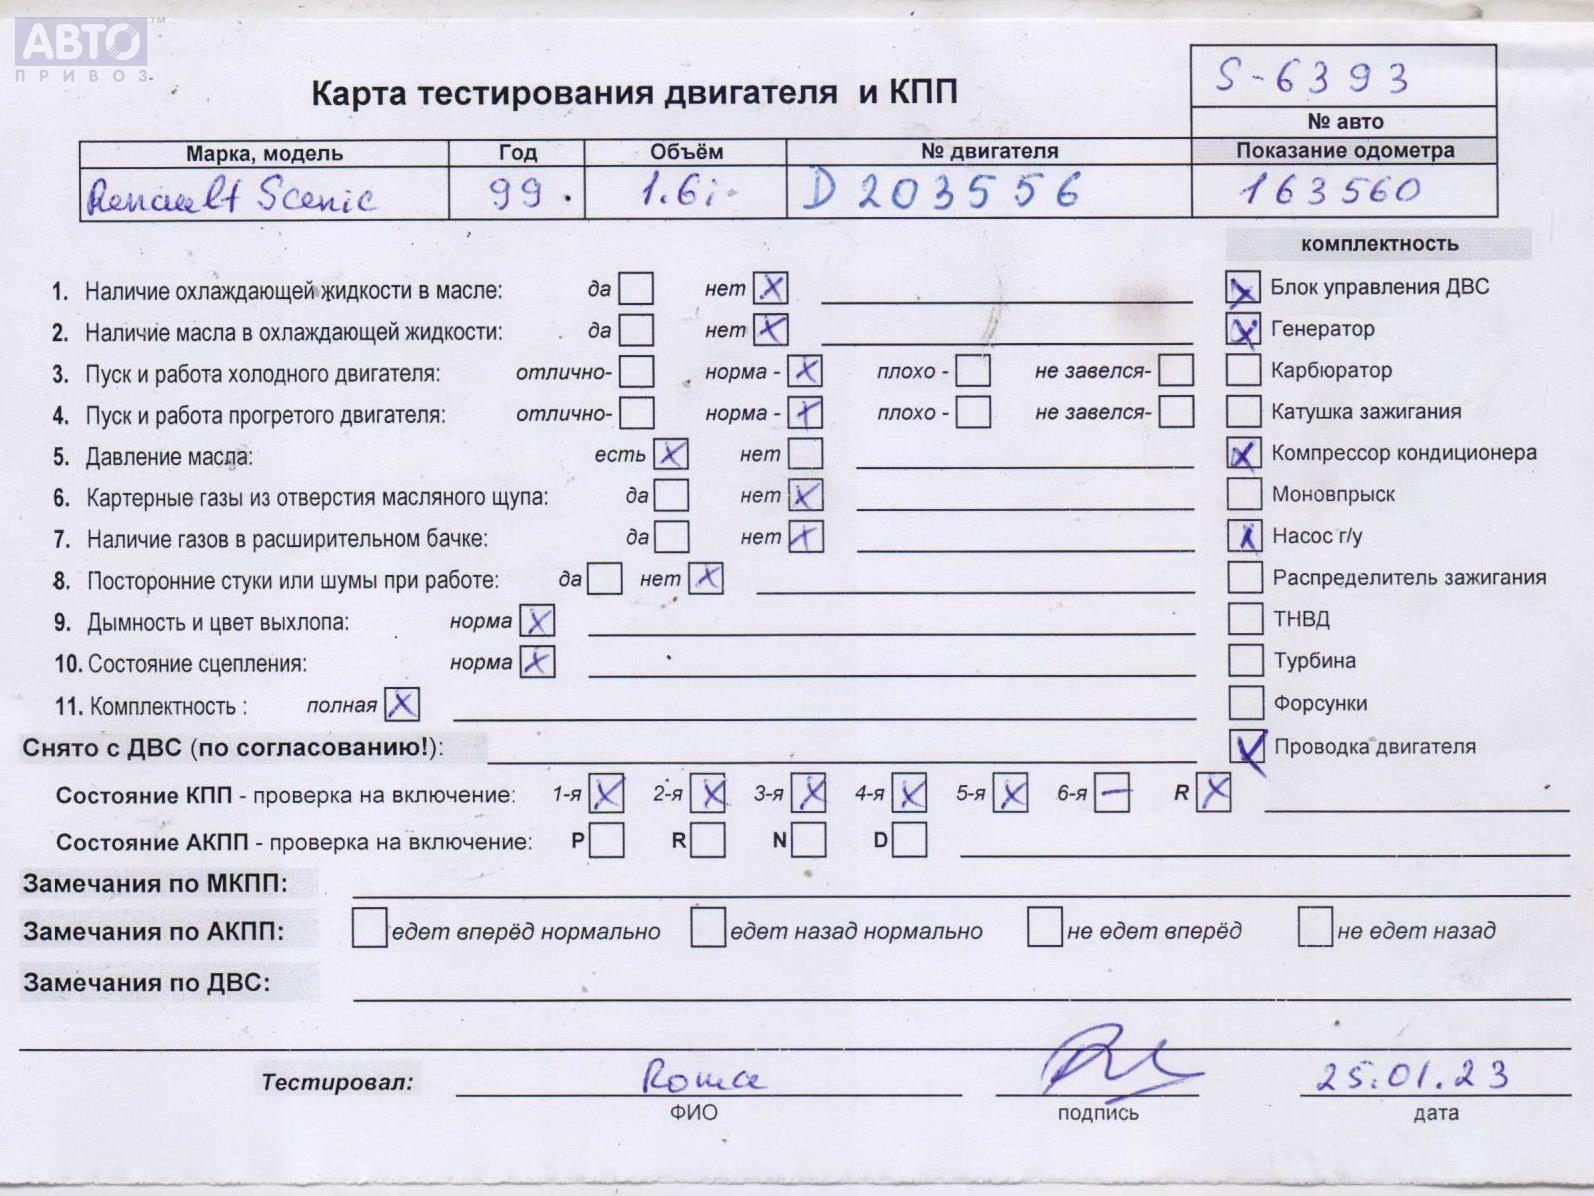 АВТО™
ПРИВОЗ
S-6393
Карта тестирования двигателя и КПП
№ авто
Марка, модель Год Объём № двигателя Показание одометра
Renault Scenic 99. 1.6i D203556 163560
комплектность
1. Наличие охлаждающей жидкости в масле: да нет X
Блок управления ДВС X
2. Наличие масла в охлаждающей жидкости: да нет X
Генератор X
3. Пуск и работа холодного двигателя: отлично- норма - X плохо - не завелся-
Карбюратор
4. Пуск и работа прогретого двигателя: отлично- норма - X плохо - не завелся-
Катушка зажигания
5. Давление масла: есть X нет
Компрессор кондиционера X
6. Картерные газы из отверстия масляного щупа: да нет X
Моновпрыск
7. Наличие газов в расширительном бачке: да нет X
Насос г/у X
8. Посторонние стуки или шумы при работе: да нет X
Распределитель зажигания
9. Дымность и цвет выхлопа: норма X
ТНВД
10. Состояние сцепления: норма X
Турбина
11. Комплектность : полная X
Форсунки
Снято с ДВС (по согласованию!):
Проводка двигателя X
Состояние КПП - проверка на включение: 1-я X 2-я X 3-я X 4-я X 5-я X 6-я — R X
Состояние АКПП - проверка на включение: P R N D
Замечания по МКПП:
Замечания по АКПП: едет вперёд нормально едет назад нормально не едет вперёд не едет назад
Замечания по ДВС:
Тестировал: Рома 25.01.23
ФИО подпись дата